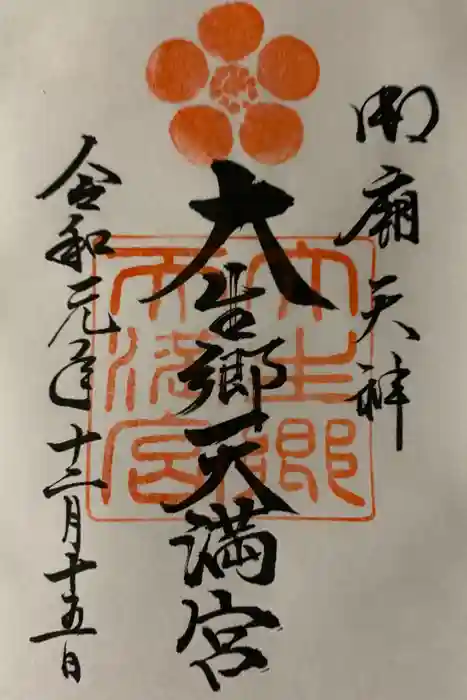 御廟天神
大生郷天満宮
大生郷天満宮
令和元年十二月十五日